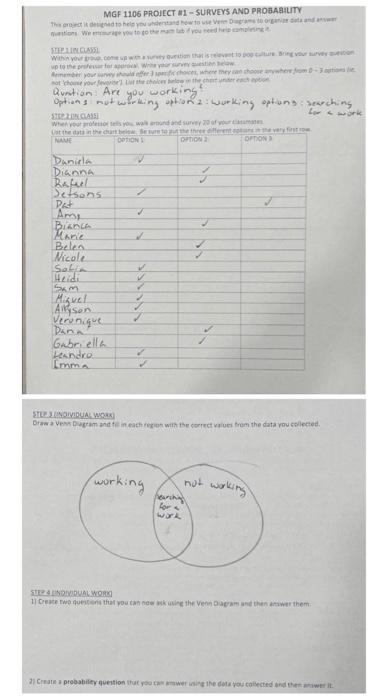 MGF 1106 PROJECT #1 – SURVEYS AND PROBABILITY
This project is designed to help you understand how to use Venn Diagrams to organize data and answer
questions. We encourage you to go the math lab if you need help completing it.
STEP 1 (IN CLASS):
Within your group, come up with a survey question that is relevant to pop culture. Bring your survey question
up to the professor for approval. Write your survey question below.
Remember your survey should offer 3 specific choices, where they can choose anywhere from 0 – 3 options (ie.
not choose your favorite). List the choices below in the chart under each option.
Quvtion: Are you working?
Option 1: not working option 2: working options: searching
for a work
STEP 2 (IN CLASS)
When your professor tells you, walk around and survey 20 of your classmates.
List the data in the chart below. Be sure to put the three different options in the very first row.
NAME OPTION 1: OPTION 2: OPTION 3:
Daniela ✓
Dianna ✓
Rafael ✓
Jetsons ✓
Pat ✓
Amy ✓
Bianca ✓
Marie ✓
Belen ✓
Nicole ✓
Sofia ✓
Heidi ✓
Sam ✓
Miguel ✓
Allyson ✓
Veronique ✓
Dana ✓
Gabriella ✓
Leandro ✓
Emma ✓
STEP 3 (INDIVIDUAL WORK)
Draw a Venn Diagram and fill in each region with the correct values from the data you collected.
working
not working
searching
for a
work
STEP 4 (INDIVIDUAL WORK)
1) Create two questions that you can now ask using the Venn Diagram and then answer them.
2) Create a probability question that you can answer using the data you collected and then answer it.